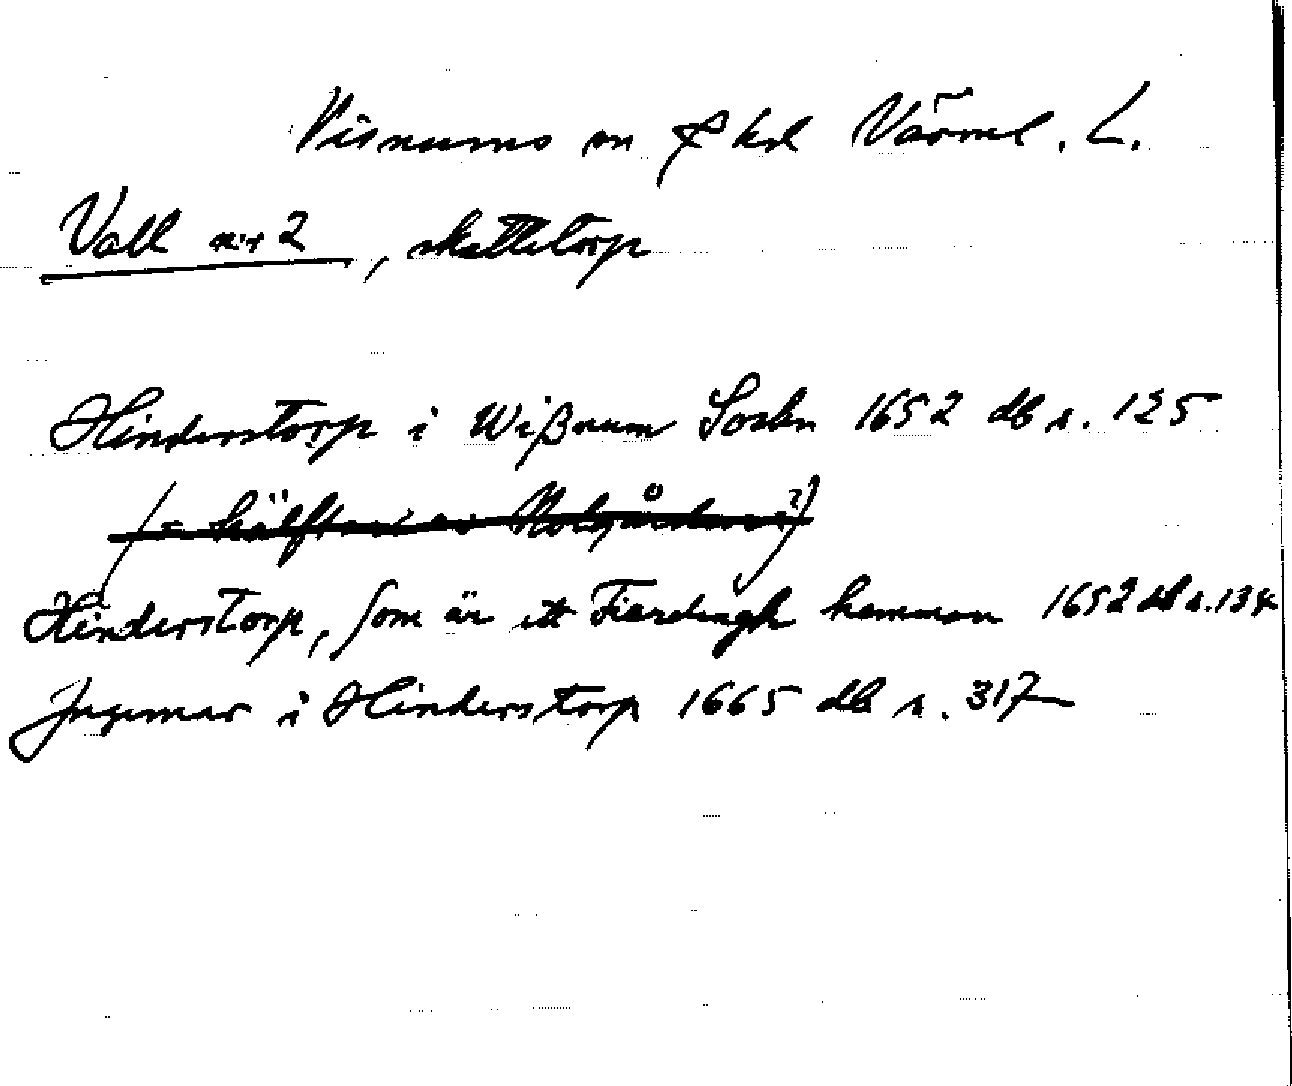 Visnums sn hd Värml. L.
Vall nr 2, skattetorp
Hinderstorp i Wißnum Sochn 1652 db s. 125
(= hälften av Nolgården?)
Hinderstorp, som är ett Fierdingh hemman 1652 db s. 134
Ingemar i Hinderstorp 1665 db s. 317